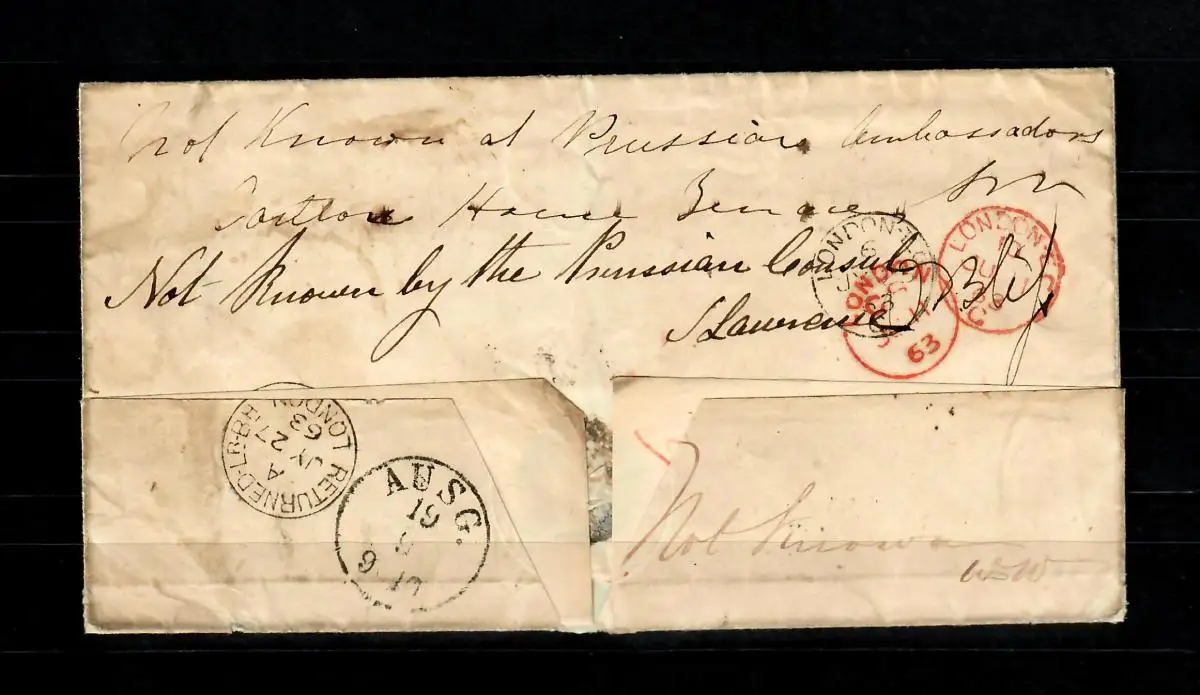 Not Known at Prussian Ambassadors
Carlton House Terrace
Not Known by the Prussian Consul
Lawrence
LONDON
63
LONDON
63
LONDON-E.C
RETURNED-LR-BR
LONDON
A
JY 27
63
AUSG.
19
Not Known